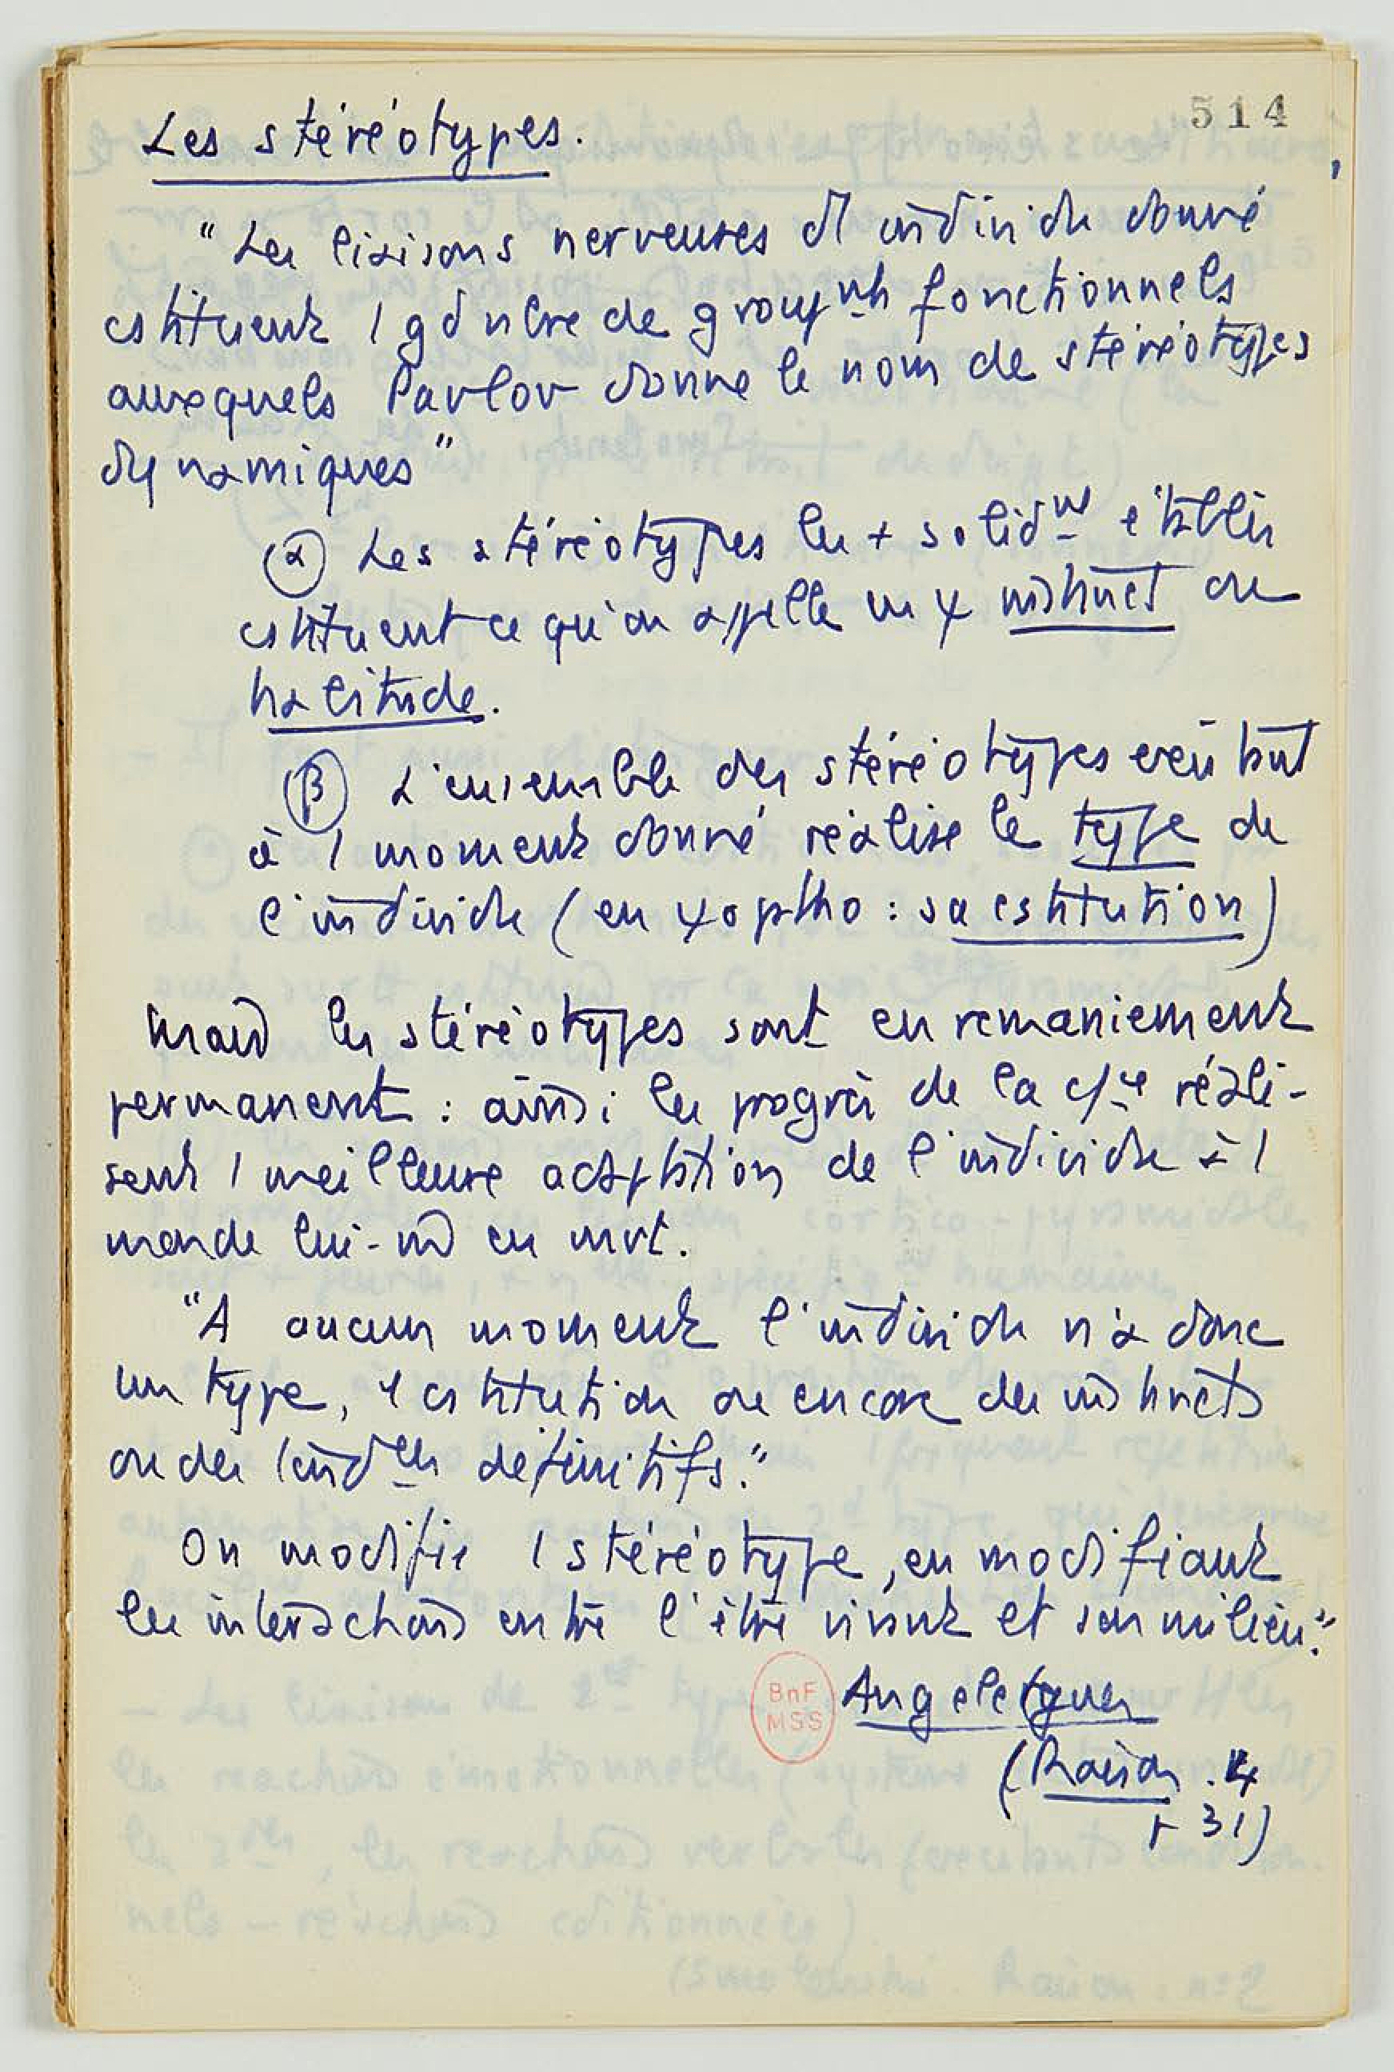 514
Les stéréotypes.
"Les liaisons nerveuses d'1 individu donné
cstituent 1 gd nbre de groupmts fonctionnels
auxquels Pavlov donne le nom de stéréotypes
dynamiques"
(α) Les stéréotypes les + solidmt établis
cstituent ce qu'on appelle en ψ instinct ou
habitude.
(β) L'ensemble des stéréotypes existant
à 1 moment donné réalise le type de
l'individu (en ψopatho : sa cstitution)
Mais les stéréotypes sont en remaniement
permanent : ainsi les progrès de la réali-
sent 1 meilleure adaptation de l'individu à 1
monde lui-m̂ en mvt.
"A aucun moment l'individu n'a donc
un type, 1 cstitution ou encore des instincts
ou des définitifs."
On modifie 1 stéréotype, en modifiant
les interactions entre l'être vivant et son milieu."
BnF
MSS
Angelergues
(Raison. 4
p 31)